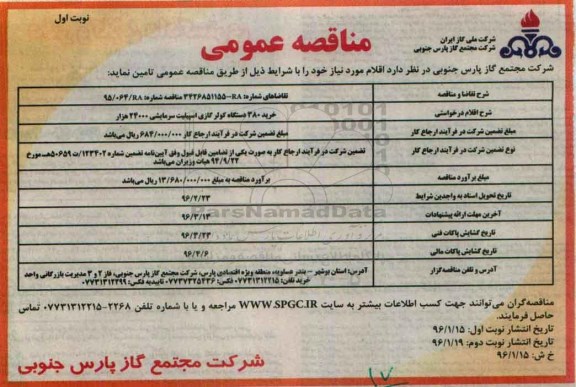 نوبت اول
شرکت ملی گاز ایران
شرکت مجتمع گاز پارس جنوبی
مناقصه عمومی
شرکت مجتمع گاز پارس جنوبی در نظر دارد اقلام مورد نیاز خود را با شرایط ذیل از طریق مناقصه عمومی تامین نماید:
شرح تقاضا و مناقصه
تقاضاهای شماره: RA-۳۳۲۶۸۵۱۱۵۵ مناقصه شماره: RA/۹۵/۰۶۴
شرح اقلام درخواستی
خرید ۳۸۰ دستگاه کولر گازی اسپیلیت سرمایشی ۲۴۰۰۰ هزار
مبلغ تضمین شرکت در فرآیند ارجاع کار
مبلغ تضمین شرکت در فرآیند ارجاع کار ۶۸۴/۰۰۰/۰۰۰ ریال می‌باشد
نوع تضمین شرکت در فرآیند ارجاع کار
تضمین شرکت در فرآیند ارجاع کار به صورت یکی از تضامین قابل قبول وفق آیین‌نامه تضمین شماره ۱۲۳۴۰۲/ت ۵۰۶۵۹هـ مورخ
۹۴/۹/۲۲ هیات وزیران می‌باشد
مبلغ برآورد مناقصه
برآورد مناقصه به مبلغ ۱۳/۶۸۰/۰۰۰/۰۰۰ ریال می‌باشد
تاریخ تحویل اسناد به واجدین شرایط
۹۶/۲/۲۳
آخرین مهلت ارائه پیشنهادات
۹۶/۳/۱۳
تاریخ گشایش پاکات فنی
۹۶/۳/۲۳
تاریخ گشایش پاکات مالی
۹۶/۴/۶
آدرس و تلفن مناقصه‌گزار
آدرس: استان بوشهر - بندر عسلویه، منطقه ویژه اقتصادی پارس، شرکت مجتمع گاز پارس جنوبی، فاز ۲ و ۳ مدیریت بازرگانی واحد
خرید تلفن: ۰۷۷۳۱۳۱۲۲۱۵ فکس: ۰۷۷۳۷۳۲۵۲۳۶ تاییدیه فکس: ۰۷۷۳۱۳۱۲۲۹۹
ParsNamadData
مناقصه‌گران می‌توانند جهت کسب اطلاعات بیشتر به سایت WWW.SPGC.IR مراجعه و یا با شماره تلفن ۲۲۶۸-۰۷۷۳۱۳۱۲۲۱۵ تماس
حاصل فرمایند.
تاریخ انتشار نوبت اول: ۹۶/۱/۱۵
تاریخ انتشار نوبت دوم: ۹۶/۱/۱۹
خ ش: ۹۶/۱/۱۵
شرکت مجتمع گاز پارس جنوبی
۱۷